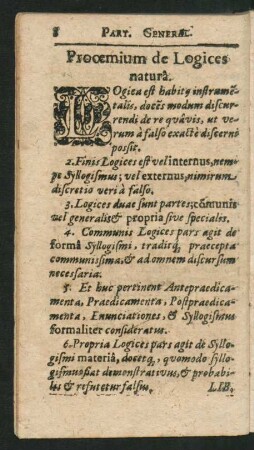 8 PART. GENERAL.
Prooemium de Logices
naturâ.
LOgica est habitꝰ instrumẽ-
talis, docẽs modum discur-
rendi de re quâvis, ut ve-
rum à falso exactè discerni
possit.
2. Finis Logices est vel internus, nem-
pe Syllogismus; vel externus, nimirum
discretio veri à falso.
3. Logices duae sunt partes; cõmunis
vel generalis & propria sive specialis.
4. Communis Logices pars agit de
formâ Syllogismi, traditq; praecepta
communissima, & ad omnem discursum
necessaria.
5. Et huc pertinent Antepraedica-
menta, Praedicamenta, Postpraedica-
menta, Enunciationes, & Syllogismus
formaliter consideratus.
6. Propria Logices pars agit de Syllo-
gismi materiâ, docetq;, quomodo syllo-
gismus fiat demonstrativus, & probabi-
lis & refutetur falsus.
LIB.